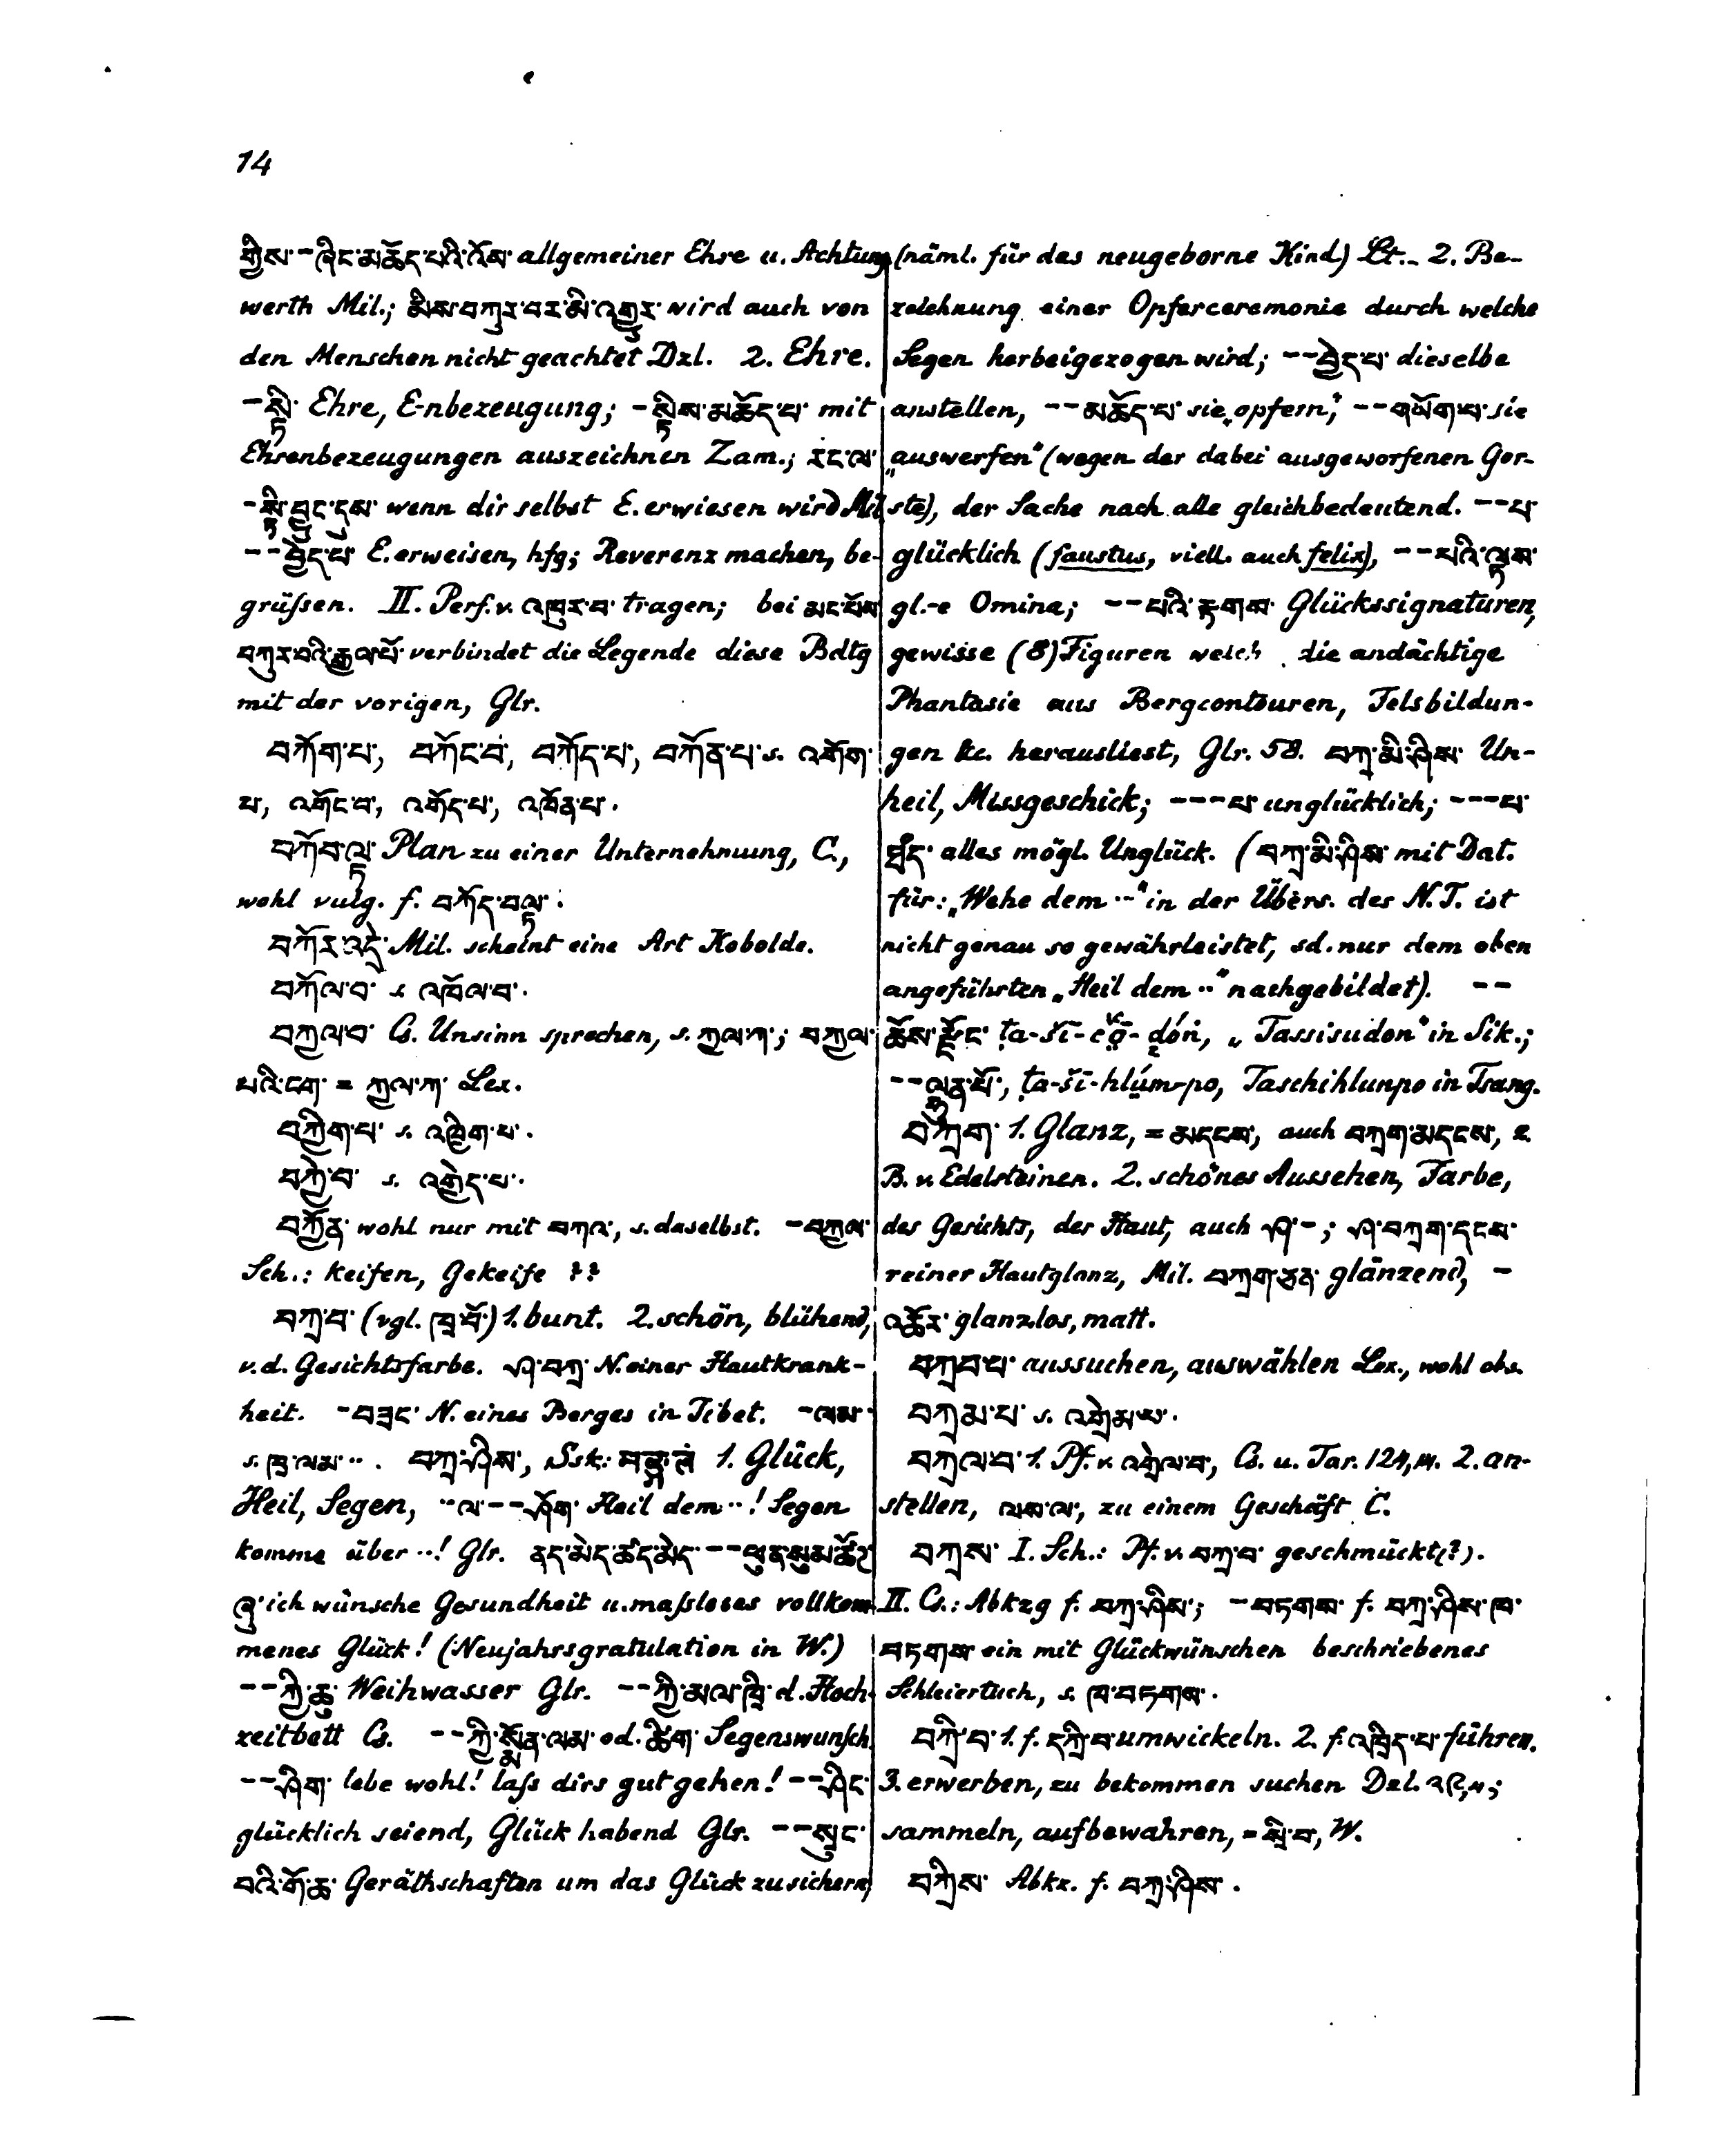 14
གྱིས་ - ཞིང་མཆོད་པའི་འོས་ allgemeiner Ehre u. Achtung
werth Mil.; མིས་བཀུར་བར་མི་འགྱུར་ wird auch von
den Menschen nicht geachtet Dzl. 2. Ehre.
- སྟི་ Ehre, E-nbezeugung; - སྟིས་མཆོད་པ་ mit
Ehrenbezeugungen auszeichnen Zam.; རང་ལ་
- སྟི་བྱུང་དུས་ wenn dir selbst E. erwiesen wird Mil
-- བྱེད་པ་ E. erweisen, hfg; Reverenz machen, be-
grüſsen. II. Perf. v. འཁུར་བ་ tragen; bei མང་པོས
བཀུར་བའི་རྒྱལ་པོ་ verbindet die Legende diese Bdtg
mit der vorigen, Glr.
བཀོག་པ་, བཀོང་བ་, བཀོད་པ་, བཀོན་པ་ s. འགོག་
པ, འགོང་བ་, འགོད་པ་, འཁོན་པ་.
བཀོབ་ལྟ་ Plan zu einer Unternehmung, C.,
wohl vulg. f. བཀོད་བལྟ་.
བཀོར་འདྲེ་ Mil. scheint eine Art Kobolde.
བཀོལ་བ་ s. འཁོལ་བ་.
བཀྱལ་བ་ Cs. Unsinn sprechen, s. ཀྱལ་ཀ་; བཀྱལ་
པའི་ངག་ = ཀྱལ་ཀ་ Lex.
བཀྱིག་པ་ s. འཁྱིག་པ་.
བཀྱེ་བ་ s. འགྱེད་པ་.
བཀྱོན་ wohl nur mit བཀའ་, s. daselbst. - བཀྱལ་
Sch.: keifen, Gekeife ??
བཀྲ་བ་ (vgl. ཁྲ་བོ་) 1. bunt. 2. schön, blühend,
v. d. Gesichtsfarbe. ཤ་བཀྲ་ N. einer Hautkrank-
heit. - བཟང་ N. eines Berges in Tibet. - ལམ་
s. ཁྲ་ལམ་ ... བཀྲ་ཤིས་, Ssk: 1. Glück,
Heil, Segen, ..ལ་ -- ཤོག་ Heil dem ..! Segen
komme über ..! Glr. ནད་མེད་ཚད་མེད་ -- ཕུན་སུམ་ཚོང་
ཞུ་ ich wünsche Gesundheit u. maſsloses vollkom-
menes Glück! (Neujahrsgratulation in W.)
-- ཀྱི་ཆུ་ Weihwasser Glr. -- ཀྱི་མལ་ཁྲི་ d. Hoch-
zeitbett Cs. -- ཀྱི་སྨོན་ལམ་ od. ཚིག་ Segenswunſch
-- ཤིག་ lebe wohl! laſs dirs gut gehen! -- ཤིང་
glücklich seiend, Glück habend Glr. -- སྲུང་
བའི་གོ་ཆ་ Geräthschaften um das Glück zu sichern,
(näml. für das neugeborne Kind) Lt. - 2. Be-
zeichnung einer Opferceremonie durch welche
Segen herbeigezogen wird; -- བྱེད་པ་ dieselbe
anstellen, -- མཆོད་པ་ sie „opfern“, -- གཡོག་པ་ sie
„auswerfen“ (wegen der dabei ausgeworfenen Ger-
ste), der Sache nach alle gleichbedeutend. -- པ་
glücklich (faustus, viell. auch felix), -- པའི་ལྟས་
gl.-e Omina; -- པའི་རྟགས་ Glückssignaturen,
gewisse (8) Figuren welch die andächtige
Phantasie aus Bergcontouren, Felsbildun-
gen &c. herausliest, Glr. 58. བཀྲ་མི་ཤིས་ Un-
heil, Missgeschick; --- པ་ unglücklich; --- པ་
ཀྱོད་ alles mögl. Unglück. (བཀྲ་མི་ཤིས་ mit Dat.
für: „Wehe dem ..“ in der Übers. des N. T. ist
nicht genau so gewährleistet, sd. nur dem oben
angeführten „Heil dem ..“ nachgebildet). --
ཆོས་རྫོང་ ṭa-ši-čʿō-dóṅ, „Tassisudon“ in Sik.;
-- ལྷུན་པོ་, ṭa-ši-hlúm-po, Taschihlunpo in Tsang.
བཀྲག་ 1. Glanz, = མདངས་, auch བཀྲག་མདངས་, z.
B. v. Edelsteinen. 2. schönes Aussehen, Farbe,
des Gesichts, der Haut, auch ཤ་ -; ཤ་བཀྲག་དངས་
reiner Hautglanz, Mil. བཀྲག་ཅན་ glänzend, -
འཚོར་ glanzlos, matt.
བཀྲབ་པ་ aussuchen, auswählen Lex., wohl obs.
བཀྲམ་པ་ s. འགྲེམ་པ་.
བཀྲལ་བ་ 1. Pf. v. འགྲེལ་བ་, Cs. u. Tar. 124,14. 2. an-
stellen, ལས་ལ་, zu einem Geschäft C.
བཀྲས་ I. Sch.: Pf. v. བཀྲ་བ་ geschmückt(?).
II. Cs.: Abkzg f. བཀྲ་ཤིས་; - བཏགས་ f. བཀྲ་ཤིས་ཁ་
བཏགས་ ein mit Glückwünschen beschriebenes
Schleiertuch, s. ཁ་བཏགས་.
བཀྲི་བ་ 1. f. དཀྲི་བ་ umwickeln. 2. f. འཁྲིད་པ་ führen.
3. erwerben, zu bekommen suchen Dzl.
sammeln, aufbewahren, = སྲི་བ་, W.
བཀྲིས་ Abkz. f. བཀྲ་ཤིས་.